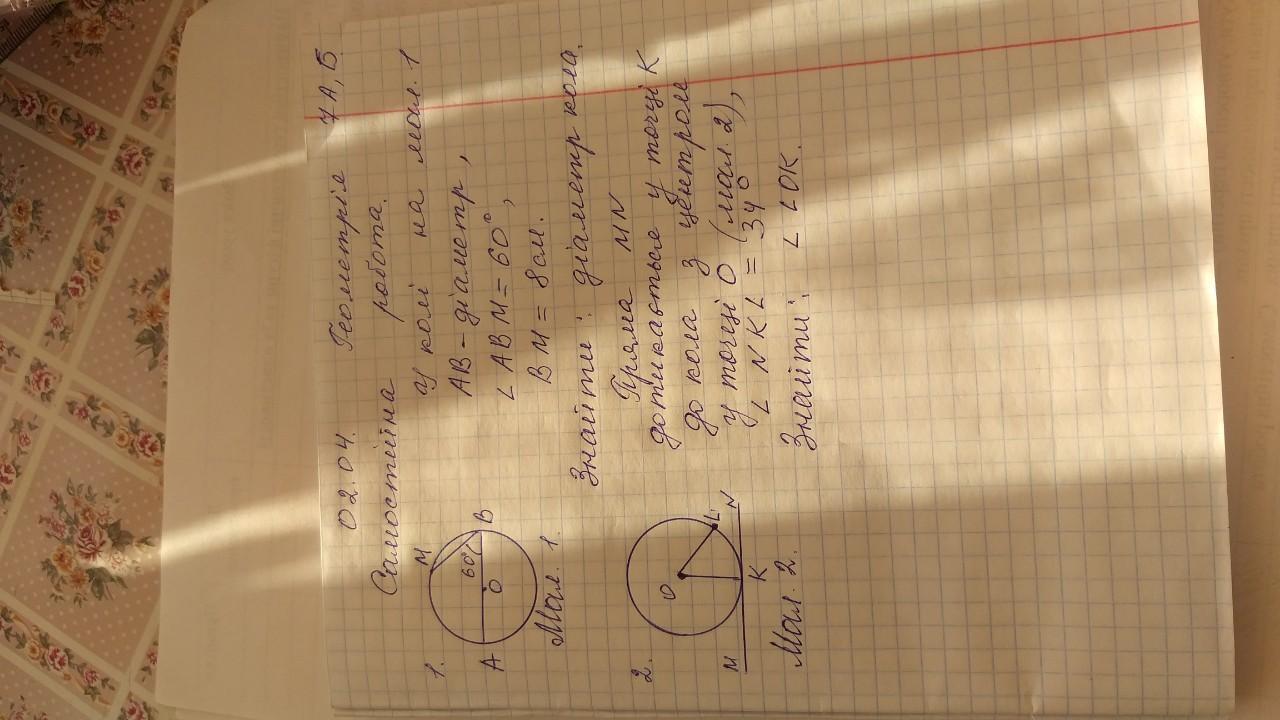 02.04. Геометрія 7А,Б
Самостійна робота.
1. У колі на мал. 1
АВ – діаметр,
∠ АВМ = 60°,
ВМ = 8 см.
Знайти: діаметр кола.
М
60°
А
О
В
Мал. 1.
2. Пряма MN
дотикається у точці К
до кола з центром
у точці О (мал. 2),
∠ NKL = 34°
Знайти: ∠ LOK.
О
L
М
К
N
Мал. 2.